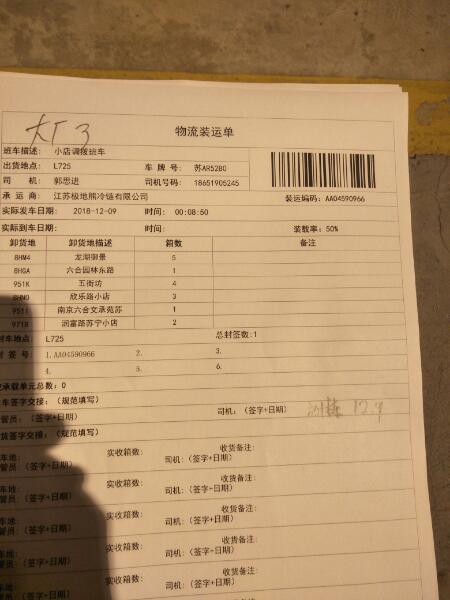 大厂3
物流装运单
班车描述: 小店调拨班车
出货地点: L725 车 牌 号: 苏AR5280
司 机: 郭思进 司机号码: 18651905245
承 运 商: 江苏极地熊冷链有限公司 装运编码: AA04590966
实际发车日期: 2018-12-09 时间: 00:08:50
实际到车日期: 时间: 装载率: 50%
卸货地 卸货地描述 箱数 备注
8HM4 龙湖御景 5
8HGA 六合园林东路 1
951K 五街坊 4
8HNO 欣乐路小店 3
9511 南京六合文承苑苏 1
971B 润富路苏宁小店 2
封车地点: L725 总封签数:1
封 签 号: 1.AA04590966 2. 3.
4. 5. 6.
承载单元总数: 0
车签字交接: (规范填写)
管员: (签字+日期) 司机: (签字+日期) 12.9
货签字交接: (规范填写)
车地: 实收箱数: 收货备注:
管员: (签字+日期) 司机: (签字+日期)
车地: 实收箱数: 收货备注:
管员: (签字+日期) 司机: (签字+日期)
车地: 实收箱数: 收货备注:
管员: (签字+日期) 司机: (签字+日期)
车地: 实收箱数: 收货备注:
管员: (签字+日期) 司机: (签字+日期)
车地: 实收箱数: 收货备注:
管员: (签字+日期) 司机: (签字+日期)